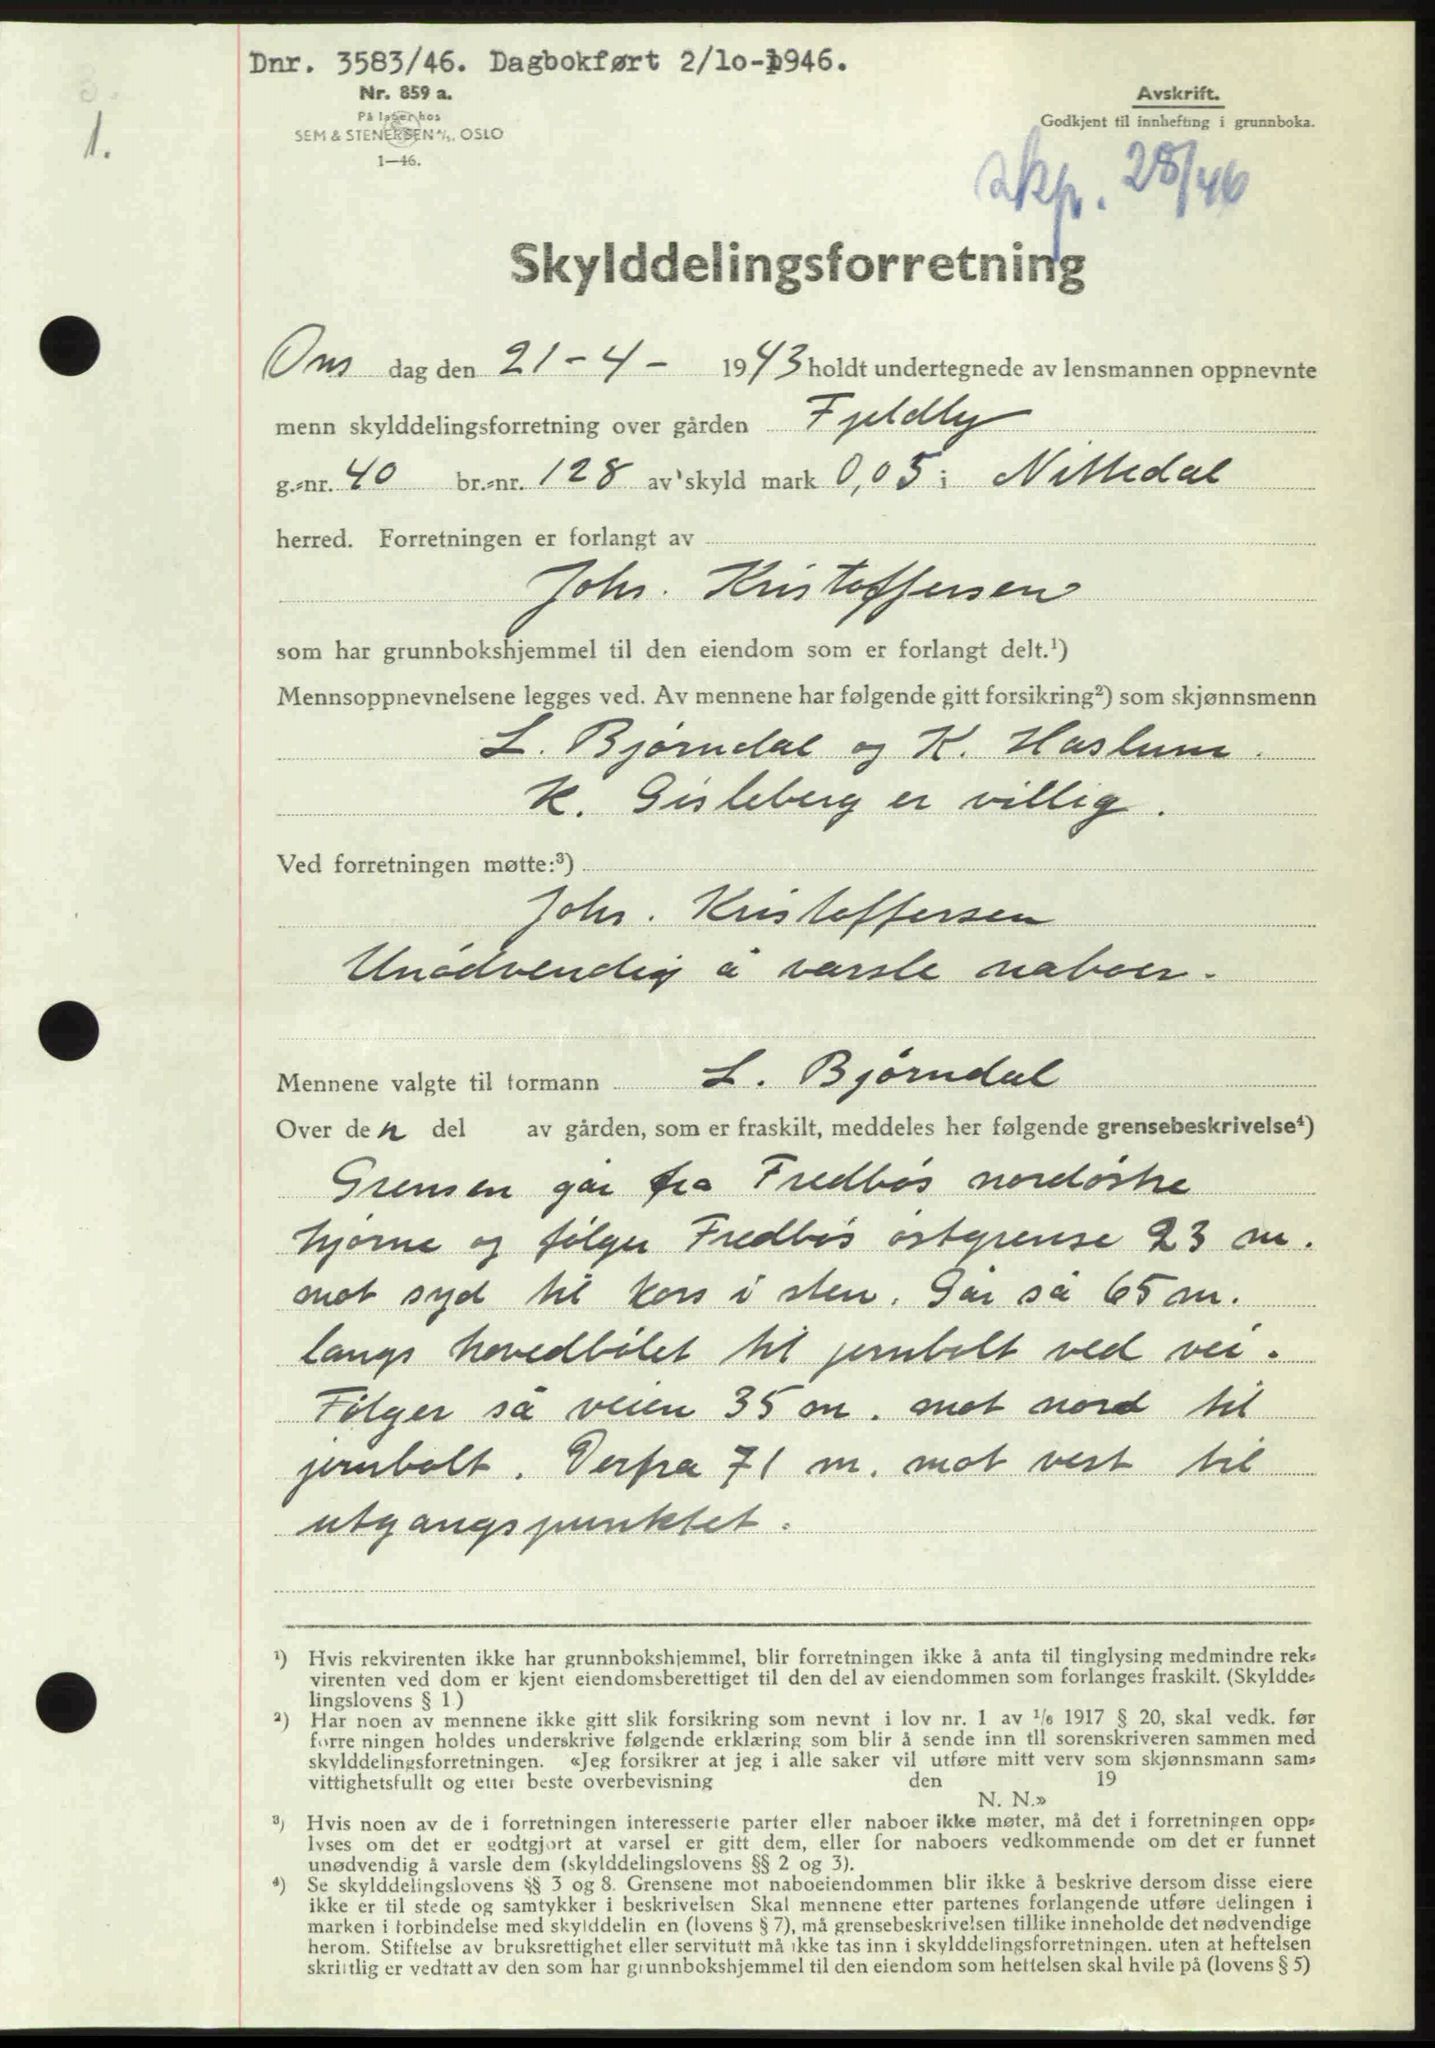 Dnr. 3583/46. Dagbokført 2/10-1946.
Nr. 859 a.
På lager hos
SEM & STENERSEN A/S, OSLO
1—46.
Avskrift.
Godkjent til innhefting i grunnboka.
1.
skp. 28/46
Skylddelingsforretning
Ons dag den 21-4- 1943 holdt undertegnede av lensmannen oppnevnte
menn skylddelingsforretning over gården Fjeldly
g.-nr. 40 br.-nr. 128 av skyld mark 0,05 i Nittedal
herred. Forretningen er forlangt av
Johs. Kristoffersen
som har grunnbokshjemmel til den eiendom som er forlangt delt.¹)
Mennsoppnevnelsene legges ved. Av mennene har følgende gitt forsikring²) som skjønnsmenn
L. Bjørndal og K. Haslum.
K. Gisleberg er villig.
Ved forretningen møtte:³)
Johs. Kristoffersen
Unödvendig å varsle naboer.
Mennene valgte til formann L. Bjørndal
Over den del av gården, som er fraskilt, meddeles her følgende grensebeskrivelse⁴)
Grensen går fra Fredbös nordöstre
hjörne og fölger Fredbös östgrense 23 m.
mot syd til kors i sten. Går så 65 m.
langs hovedbölet til jernbolt ved vei.
Fölger så veien 35 m. mot nord til
jernbolt. Derfra 71 m. mot vest til
utgangspunktet.
¹) Hvis rekvirenten ikke har grunnbokshjemmel, blir forretningen ikke å anta til tinglysing medmindre rek-
virenten ved dom er kjent eiendomsberettiget til den del av eiendommen som forlanges fraskilt. (Skyldde-
lingslovens § 1)
²) Har noen av mennene ikke gitt slik forsikring som nevnt i lov nr. 1 av 1/6 1917 § 20, skal vedk. før
forre ningen holdes underskrive følgende erklæring som blir å sende inn til sorenskriveren sammen med
skylddelingsforretningen. «Jeg forsikrer at jeg i alle saker vil utføre mitt verv som skjønnsmann sam-
vittighetsfullt og etter beste overbevisning den 19
N. N.»
³) Hvis noen av de i forretningen interesserte parter eller naboer ikke møter, må det i forretningen opp-
lyses om det er godtgjort at varsel er gitt dem, eller for naboers vedkommende om det er funnet
unødvendig å varsle dem (skylddelingslovens §§ 2 og 3).
⁴) Se skylddelingslovens §§ 3 og 8. Grensene mot naboeiendommen blir ikke å beskrive dersom disse eiere
ikke er til stede og samtykker i beskrivelsen Skal mennene etter partenes forlangende utføre delingen i
marken i forbindelse med skylddelin en (lovens § 7), må grensebeskrivelsen tillike inneholde det nødvendige
herom. Stiftelse av bruksrettighet eller servitutt må ikke tas inn i skylddelingsforretningen. uten at heftelsen
skriftlig er vedtatt av den som har grunnbokshjemmel til den eiendom som heftelsen skal hvile på (lovens § 5)